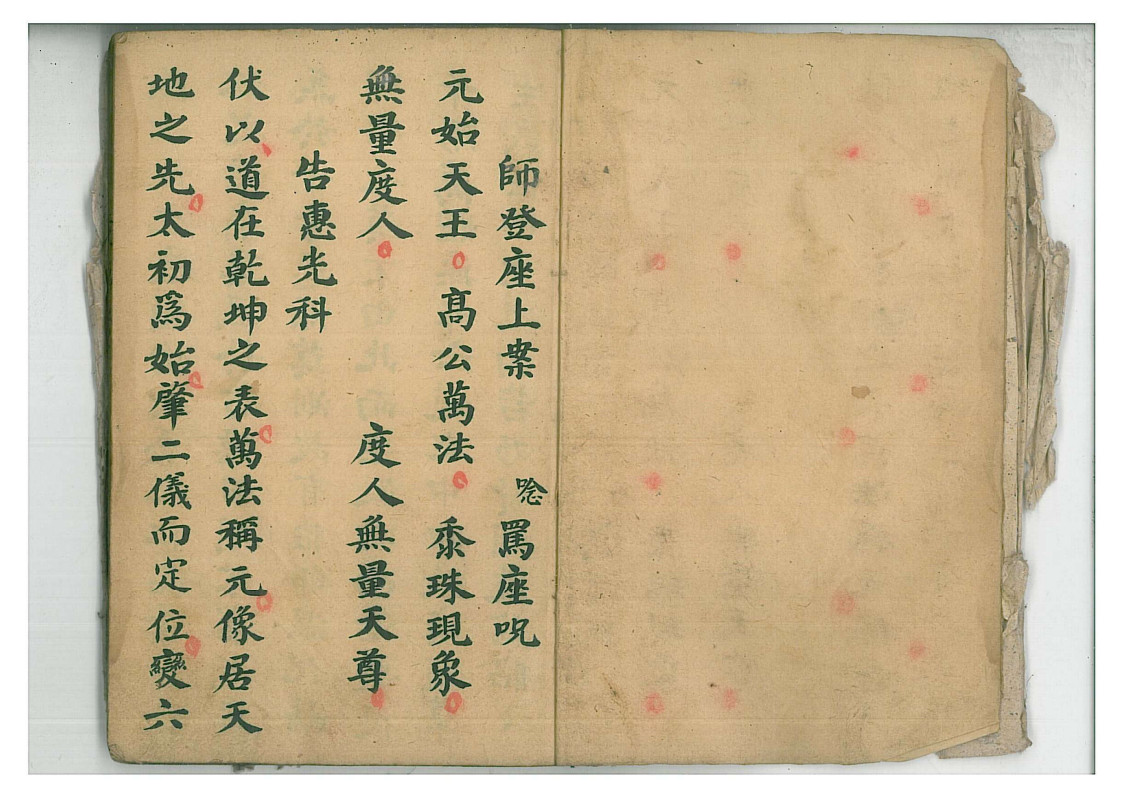 師登座上案 唸罵座呪
元始天王高公萬法黍珠現象
無量度人 度人無量天尊
告惠光科
伏以道在乾坤之表萬法稱元像居天
地之先太初爲始肇二儀而定位變六